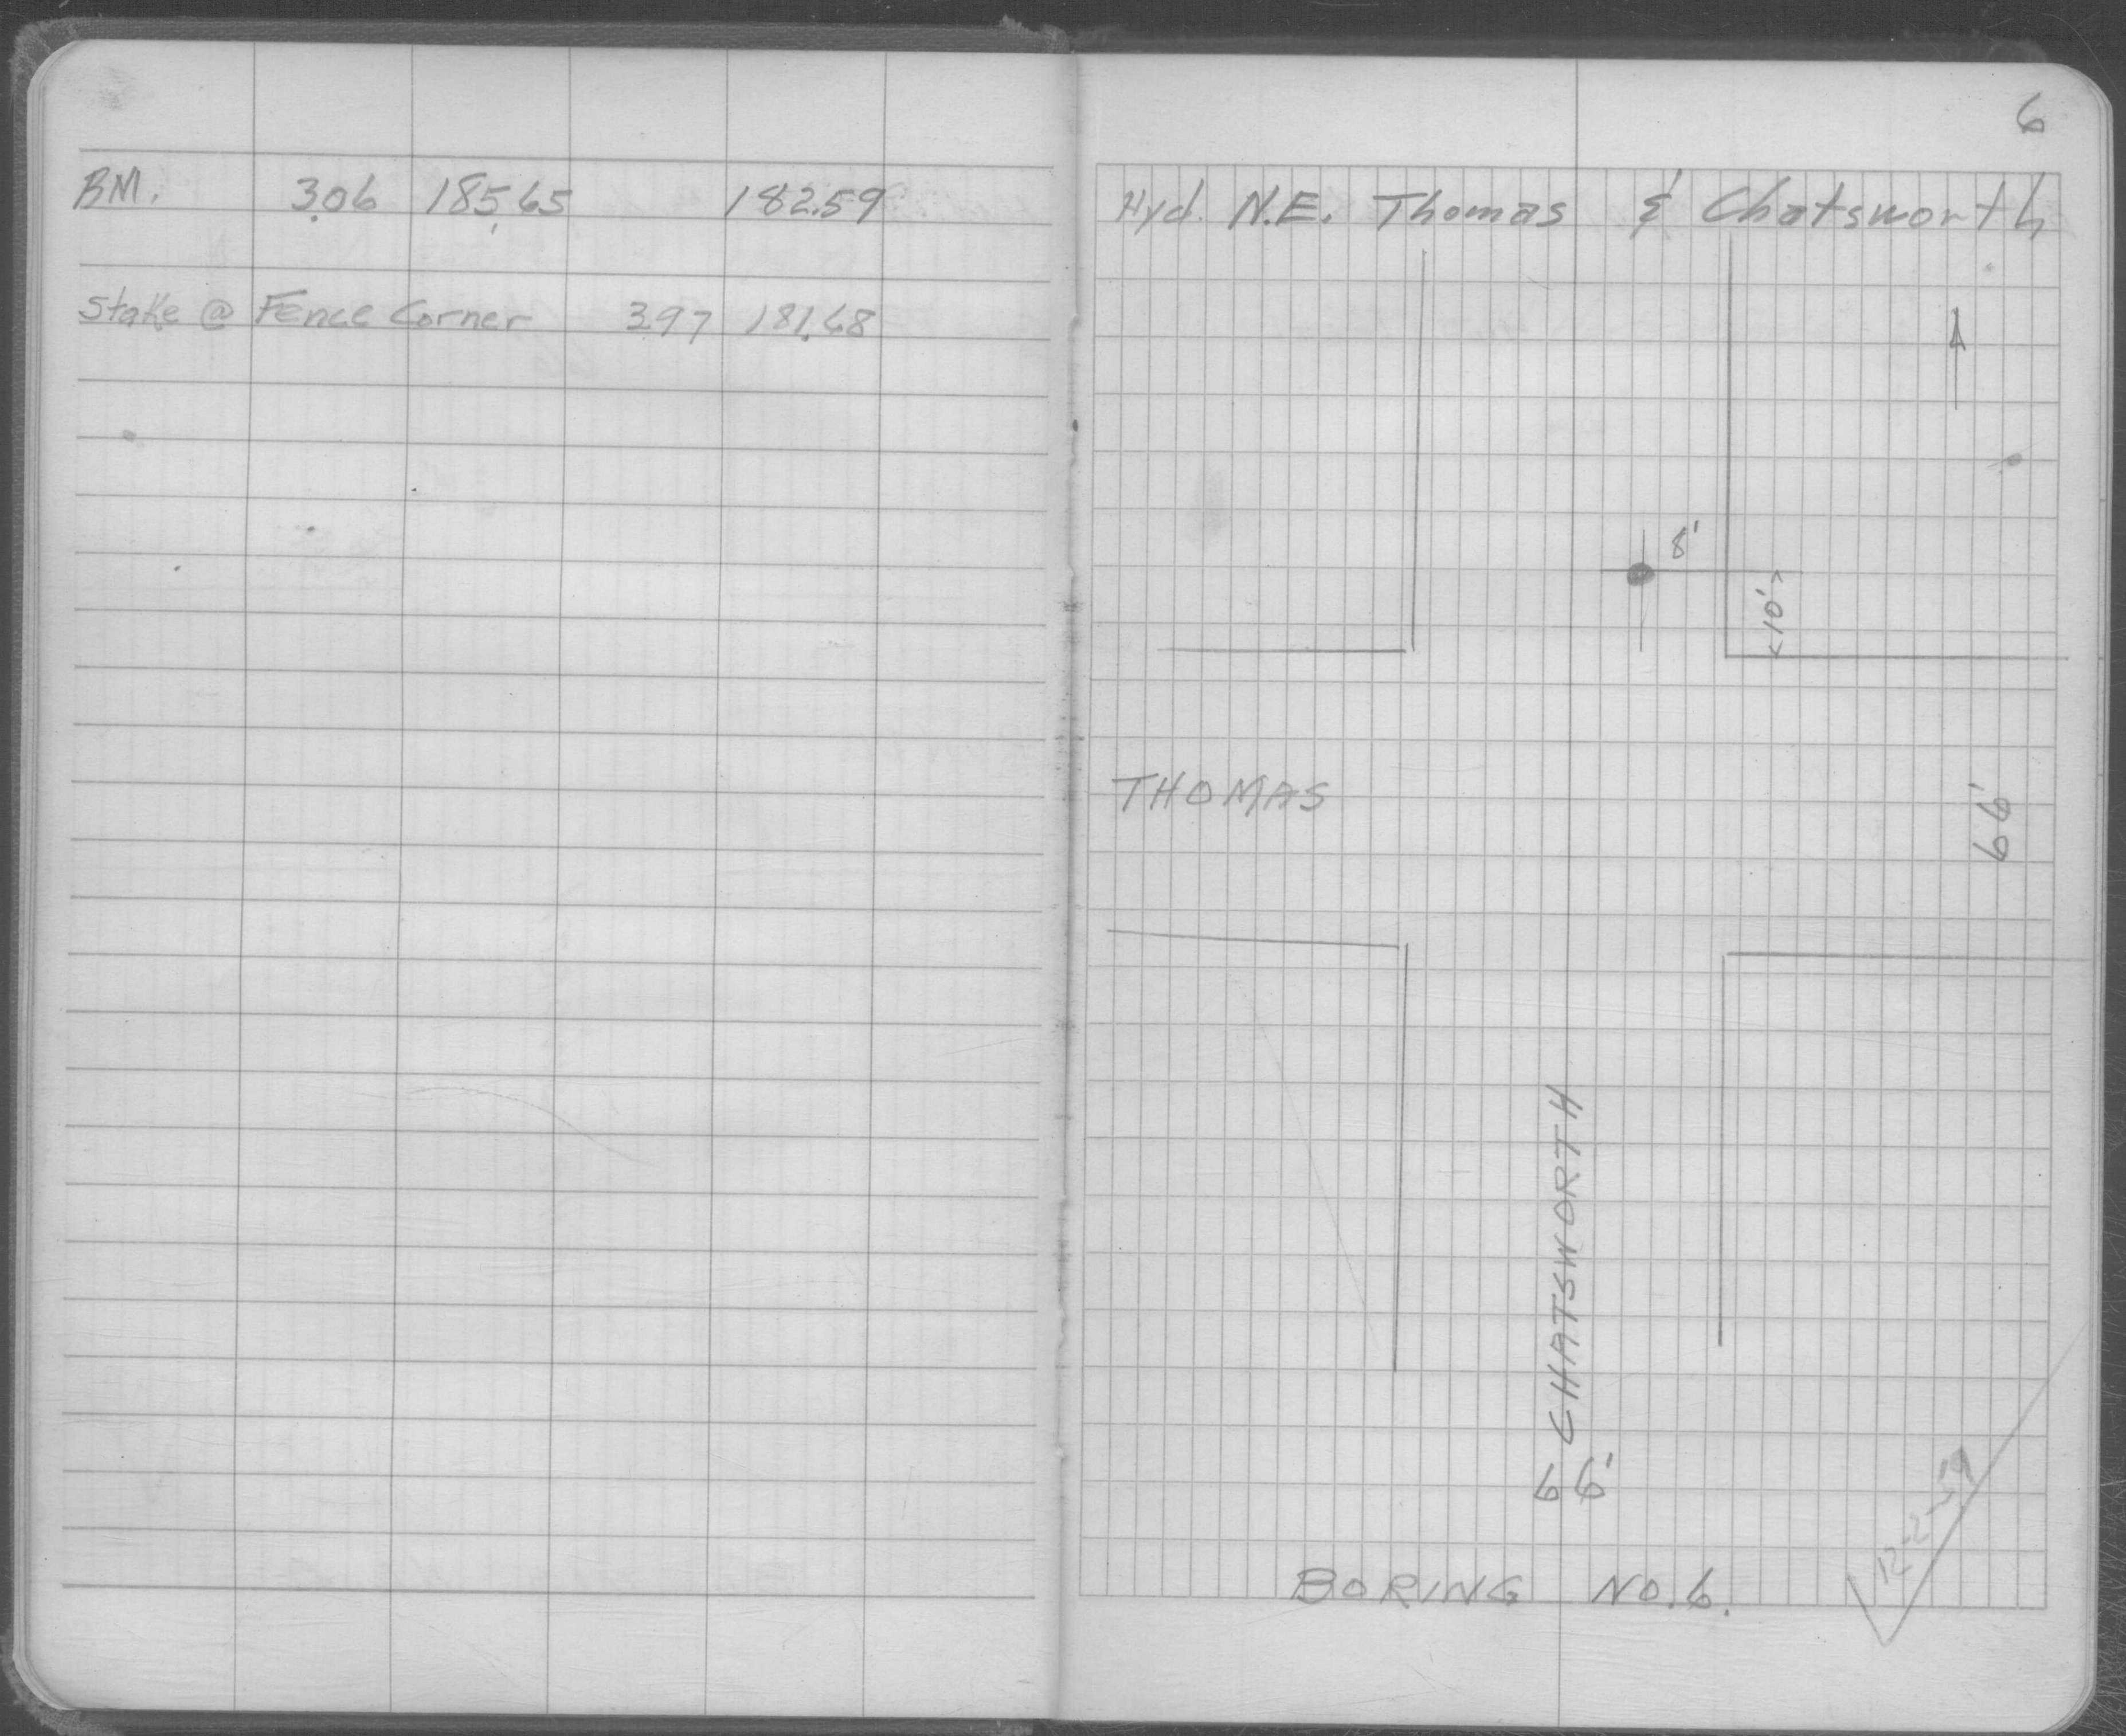 BM. 3.06 185.65 182.59
Stake @ Fence Corner 3.97 181.68
6
Hyd. N.E. Thomas & Chatsworth
8'
10'
THOMAS
66'
CHATSWORTH
66'
BORING NO. 6.